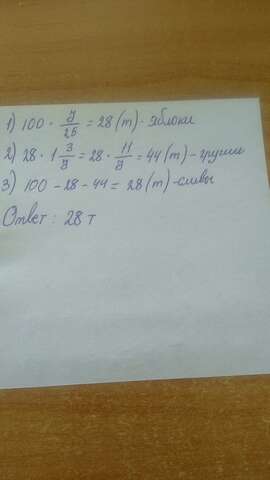 1) 100 · 7/25 = 28 (т) - яблоки
2) 28 · 1 4/7 = 28 · 11/7 = 44 (т) - груши
3) 100 - 28 - 44 = 28 (т) - сливы
Ответ: 28 т